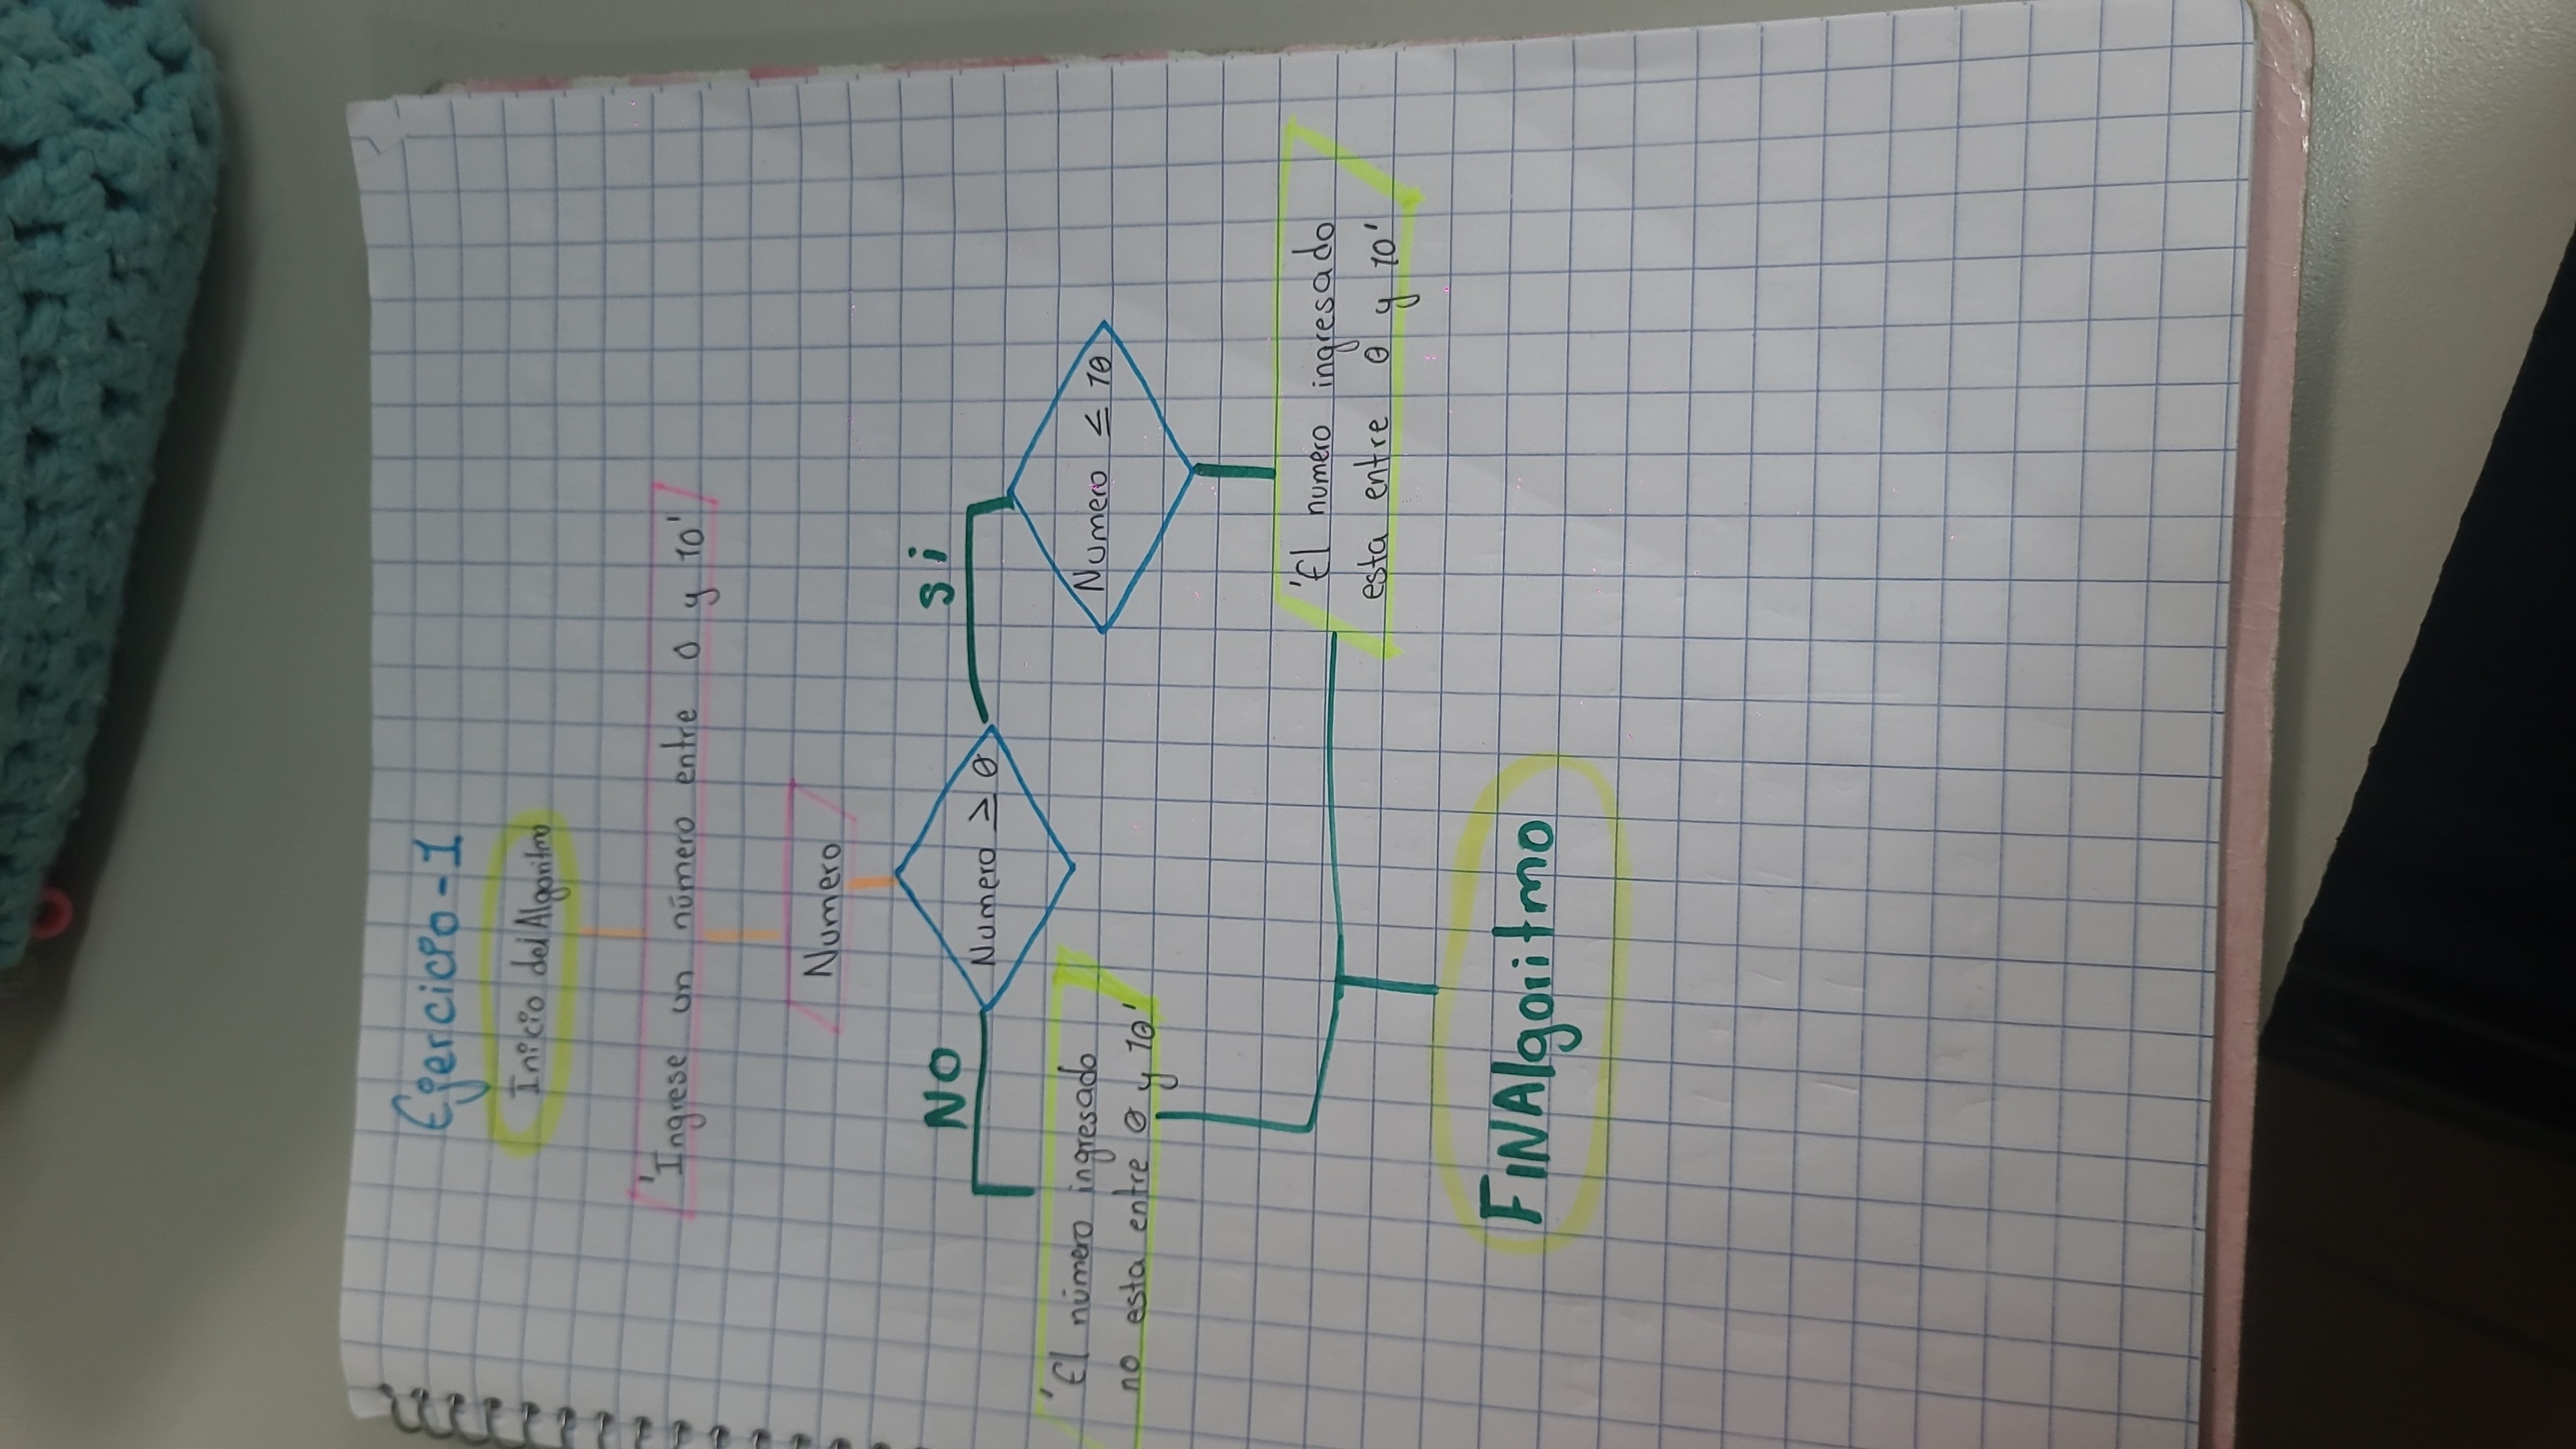 Ejercicio-1
Inicio del Algoritmo
'Ingrese un número entre 0 y 10'
Numero
NO
Si
Numero ≥ 0
Numero ≤ 10
'El número ingresado
no esta entre 0 y 10'
'El numero ingresado
esta entre 0 y 10'
FiNAlgoritmo